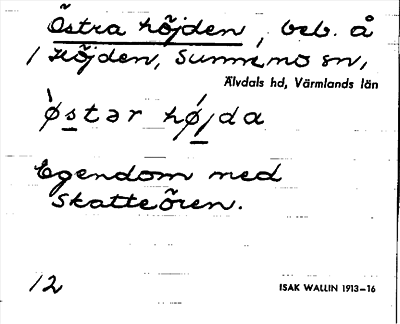 Östra höjden, beb. å
/ Höjden, Sunnemo sn,
Älvdals hd, Värmlands län
`østər hǿjda
Egendom med
skatteören.
12
ISAK WALLIN 1913–16